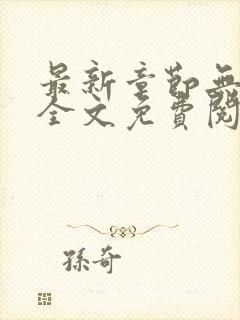 最新章節無
全文免費閱
孫奇